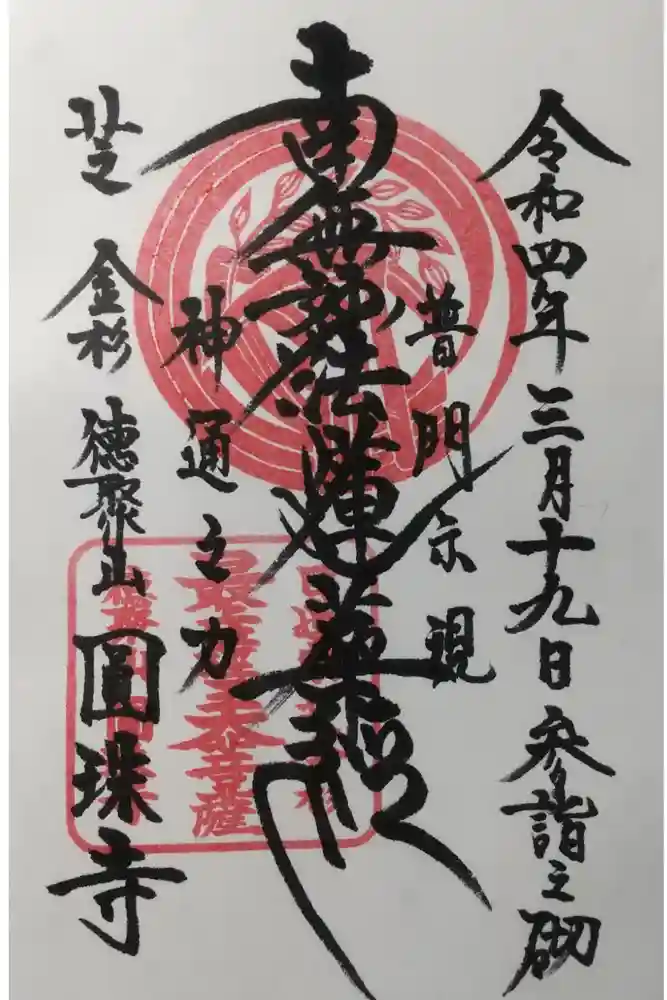 令和四年三月十九日参詣之砌
普門示現
南無妙法蓮華経
神通之力
芝金杉徳聚山圓珠寺
最 菩薩